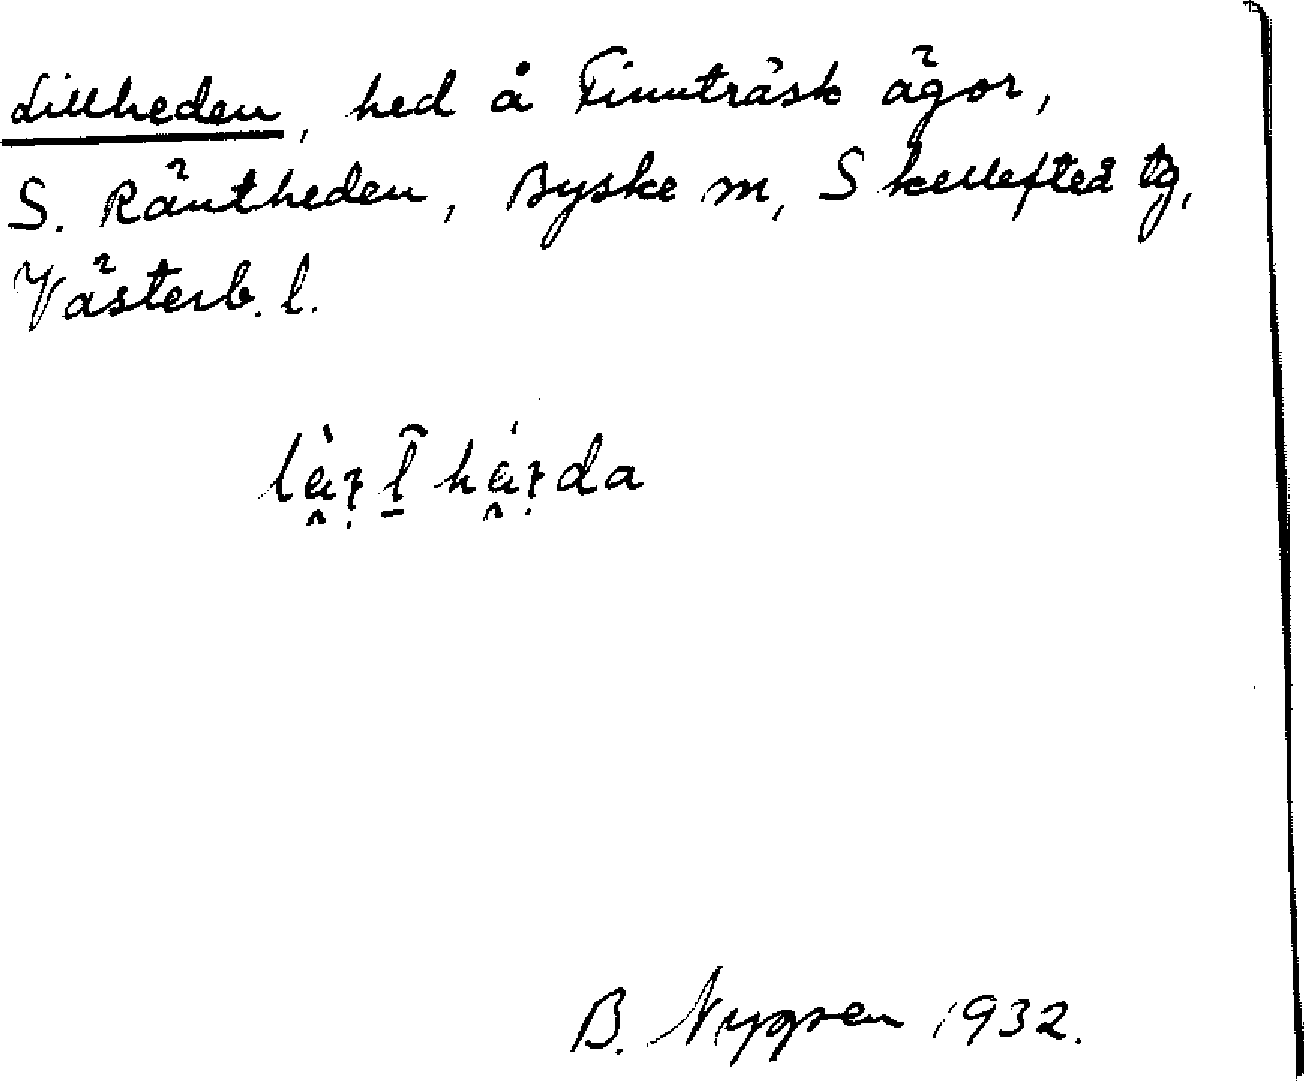 Lillheden, hed å Finnträsk ägor,
S. Räntheden, Byske sn, Skellefteå tg,
Västerb. l.
B. Nygren 1932.